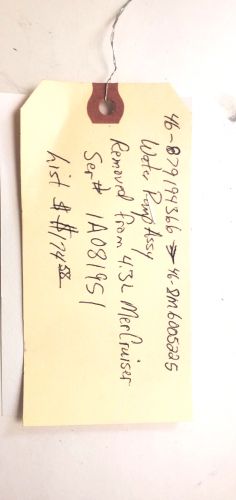 46-879194366 → 46-8M6005225
Water Pump Assy
Removed from 4.3L MerCruiser
Ser# 1A081951
List $ 174 58